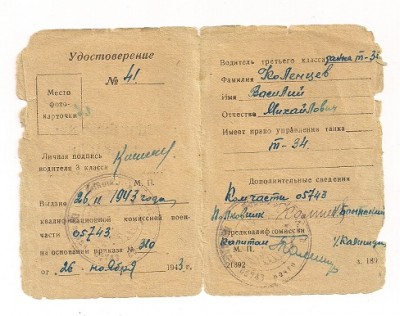 Удостоверение
№ 41
Место
фото-
карточки
Личная подпись
водителя 3 класса
М. П.
Выдано 26.11 1943 года
квалификационной комиссией воин-
части 05743
на основании приказа № 310
от „26" ноября 1943 г.
Водитель третьего класса танка т-34
Фамилия Коленцев
Имя Василий
Отчество Михайлович
Имеет право управления танка
т-34.
Дополнительные сведения
Ком. части 05743
Полковник
Пред. квалиф. комиссии
капитан
М. П.